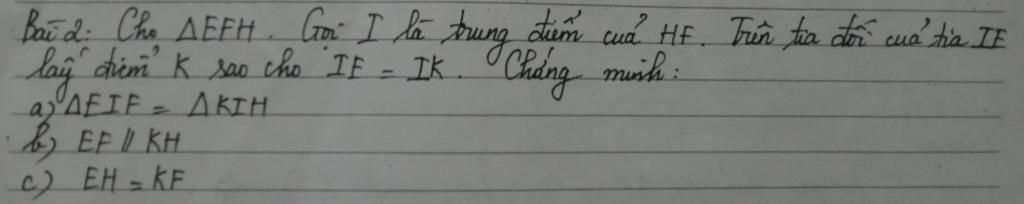 Bài 2: Cho ΔEFH. Gọi I là trung điểm của HF. Trên tia đối của tia IE
lấy điểm K sao cho IE = IK. Chứng minh:
a) ΔEIF = ΔKIH
b) EF // KH
c) EH = KF